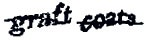 graft coats